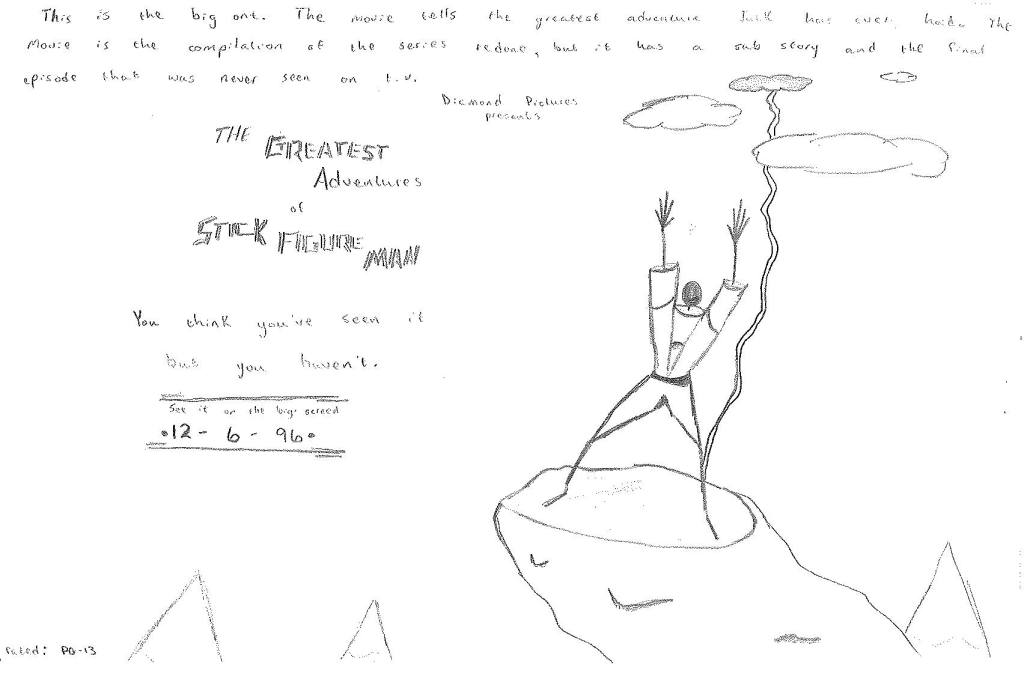 This is the big ont. The movie tells the greatest adventure Jack has ever had. The
Movie is the compilation of the series redone, but it has a sub story and the final
episode that was never seen on t.v.
Diamond Pictures
presents
THE
GREATEST
Adventures
of
STICK FIGURE MAN
You think you've seen it
but you haven't.
See it on the big screen
12-6-96
rated: PG-13